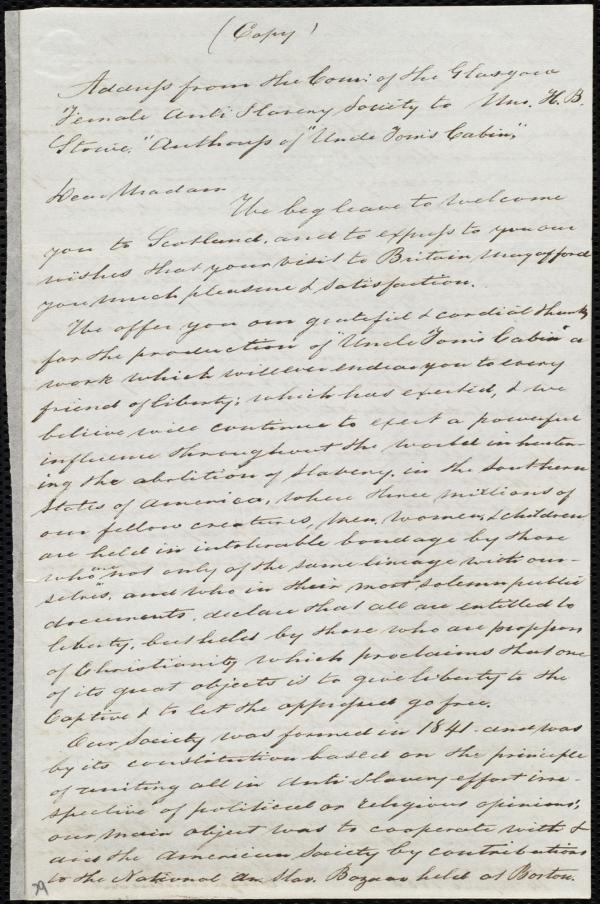 (Copy)
Address from the Com: of the Glasgow
Female Anti Slavery Society to Mrs. H. B.
Stowe, "Authoress of "Uncle Tom's Cabin,"
Dear Madam
We beg leave to welcome
you to Scotland, and to express to you our
wishes that your visit to Britain may afford
you much pleasure & satisfaction.
We offer you our grateful & cordial thanks
for the production of "Uncle Tom's Cabin" a
work which will ever endear you to every
friend of liberty; which has exerted, & we
believe will continue to exert a powerful
influence throughout the world in hasten-
ing the abolition of slavery, in the Southern
States of America, where three millions of
our fellow creatures, men, women, & children
are held in intolerable bondage by those
who are not only of the same lineage with our-
selves, and who in their most solemn public
documents, declare that all are entitled to
liberty, but held by those who are professors
of Christianity which proclaims that one
of its great objects is to give liberty to the
Captive & to let the oppressed go free.
Our Society was formed in 1841. and was
by its constitution based on the principle
of uniting all in Anti Slavery effort irre-
spective of political or religious opinions;
our main object was to cooperate with &
aid the American Society by contributions
to the National An Slav. Bazaar held at Boston.